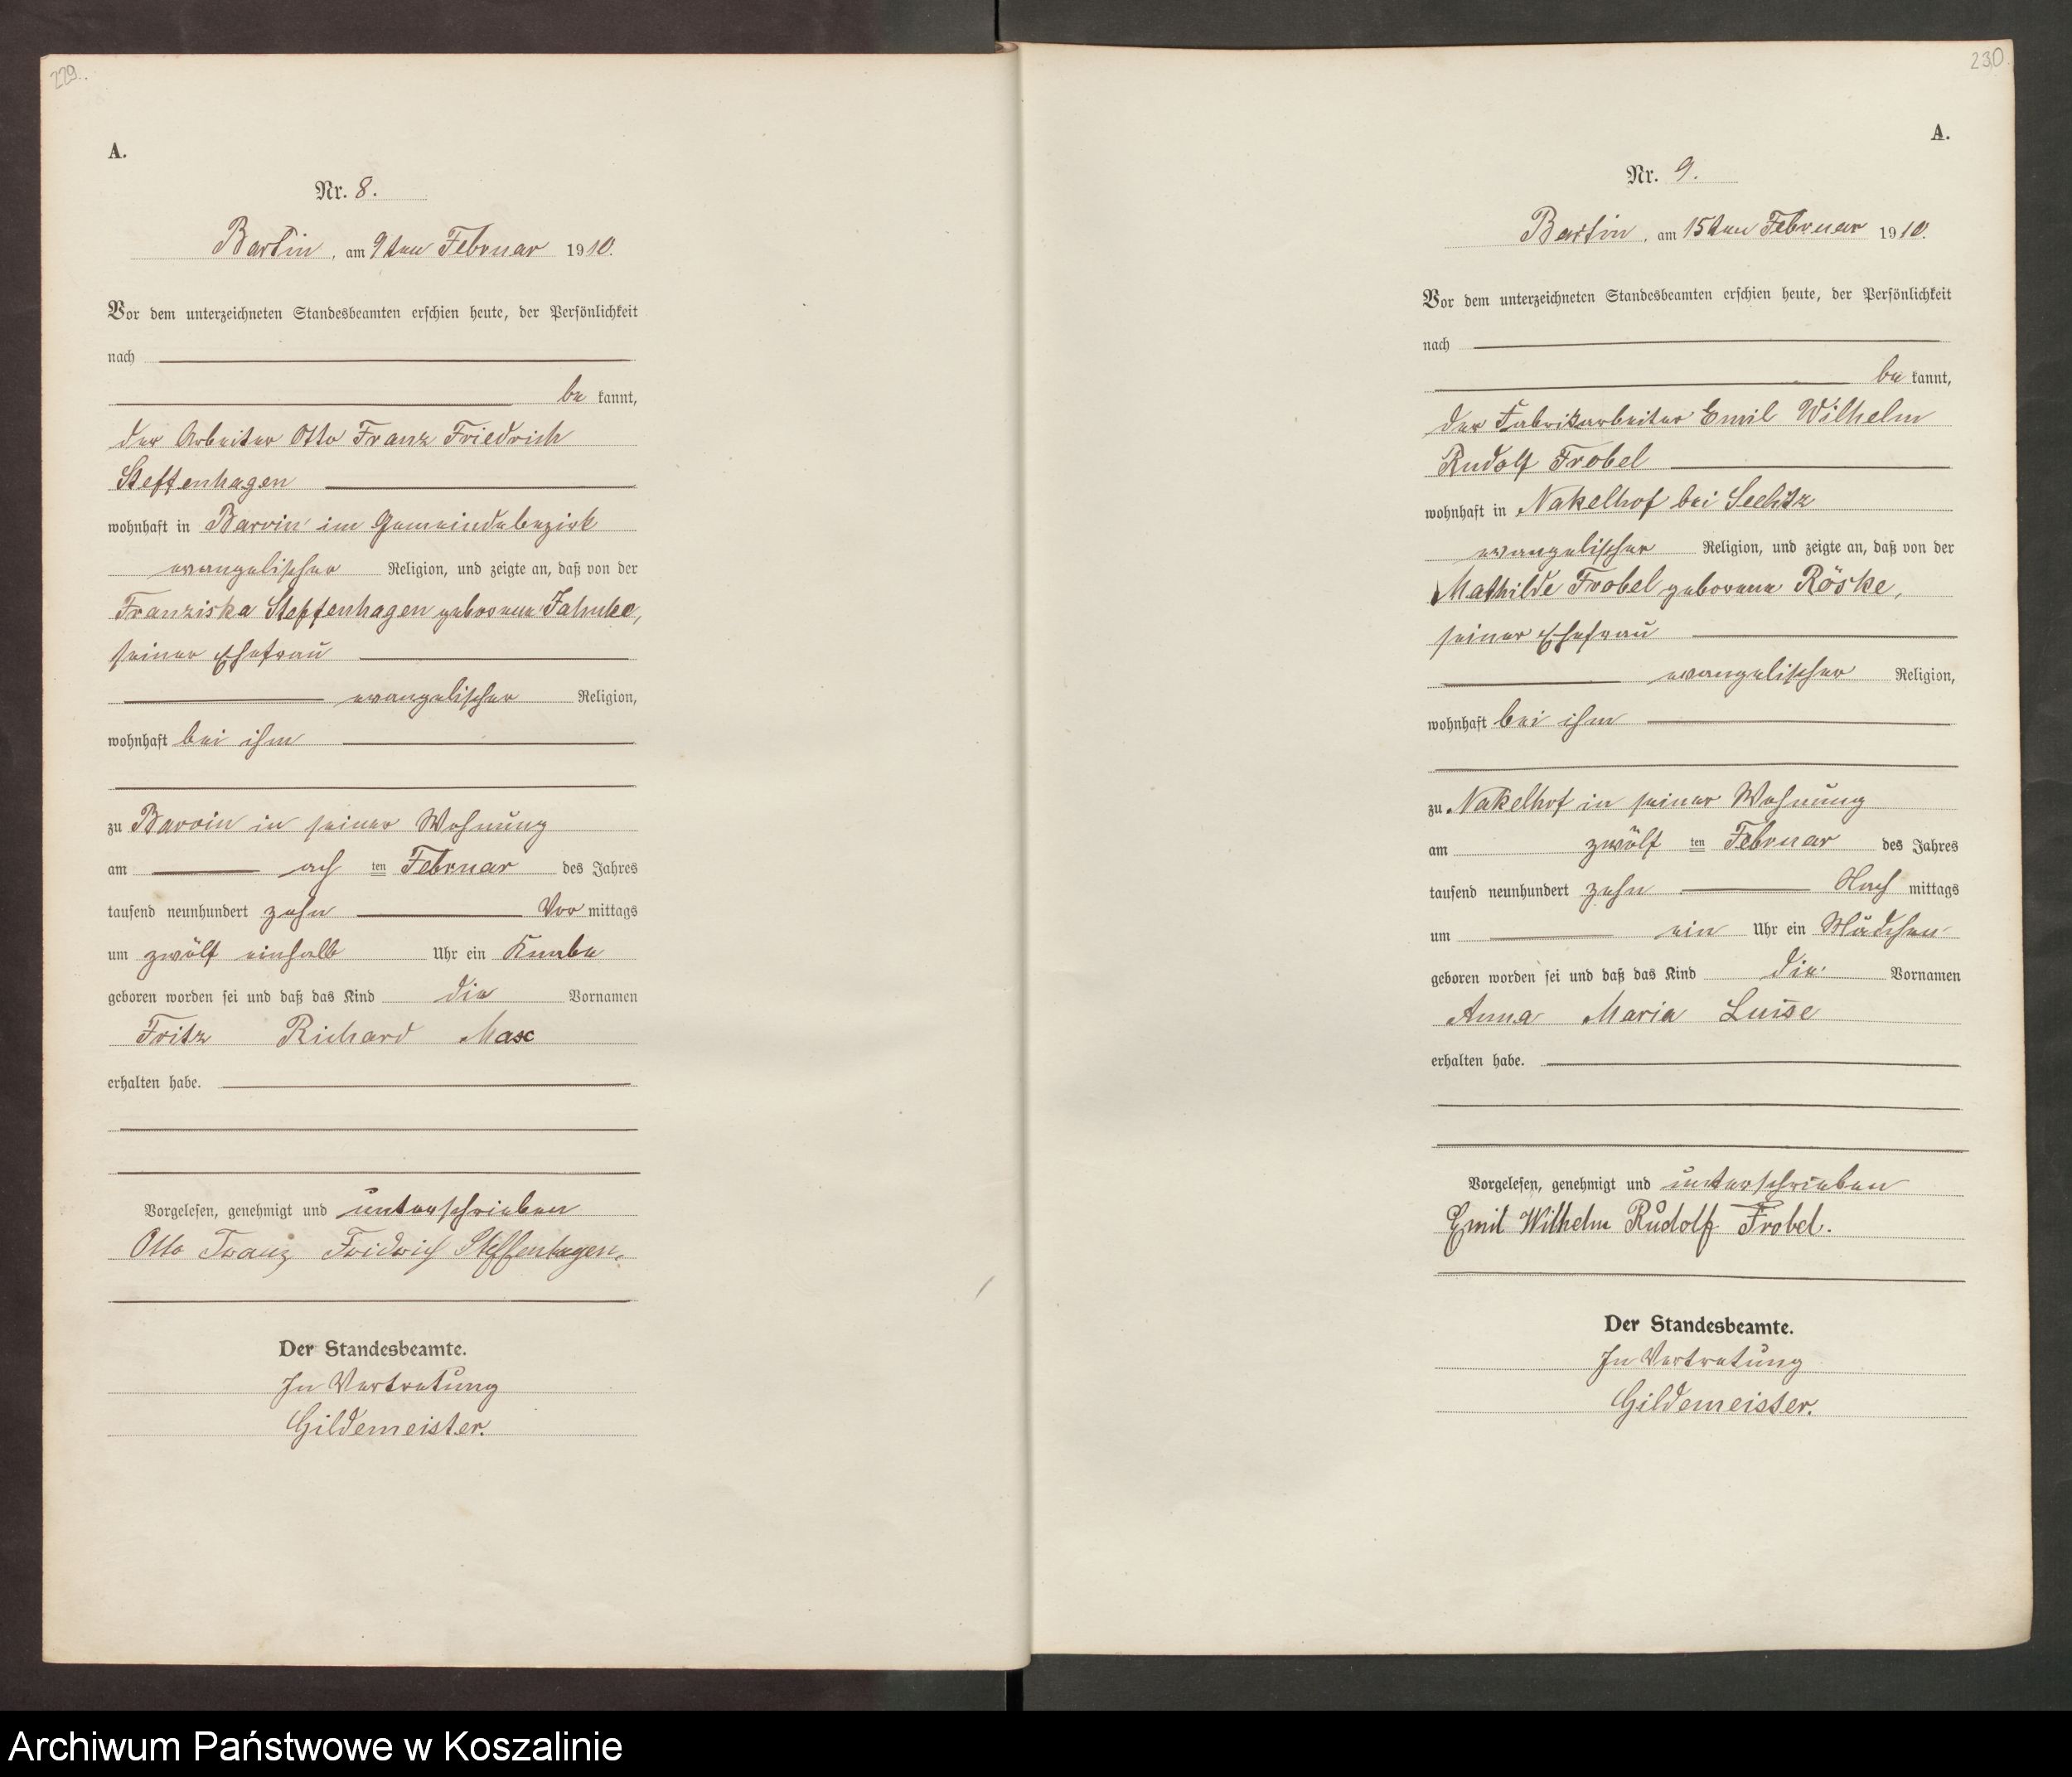 229.
A.
Nr. 8.
Bartin, am 9ten Februar 1910.
Vor dem unterzeichneten Standesbeamten erschien heute, der Persönlichkeit
nach
be kannt,
der Arbeiter Otto Franz Friedrich
Steffenhagen
wohnhaft in Barvin im Gemeindebezirk
evangelischer Religion, und zeigte an, daß von der
Franziska Steffenhagen geborene Jahnke,
seiner Ehefrau
evangelischer Religion,
wohnhaft bei ihm
zu Barvin in seiner Wohnung
am ach ten Februar des Jahres
tausend neunhundert zehn Vor mittags
um zwölf einhalb Uhr ein Knabe
geboren worden sei und daß das Kind die Vornamen
Fritz Richard Max
erhalten habe.
Vorgelesen, genehmigt und unterschrieben
Otto Franz Fridrich Steffenhagen.
Der Standesbeamte.
In Vertretung
Gildemeister.
230.
A.
Nr. 9.
Bartin, am 15ten Februar 1910.
Vor dem unterzeichneten Standesbeamten erschien heute, der Persönlichkeit
nach
be kannt,
der Fabrikarbeiter Emil Wilhelm
Rudolf Frobel
wohnhaft in Nakelhof bei
evangelischer Religion, und zeigte an, daß von der
Mathilde Frobel geborene Röske,
seiner Ehefrau
evangelischer Religion,
wohnhaft bei ihm
zu Nakelhof in seiner Wohnung
am zwölf ten Februar des Jahres
tausend neunhundert zehn Nach mittags
um ein Uhr ein Mädchen
geboren worden sei und daß das Kind die Vornamen
Anna Maria Luise
erhalten habe.
Vorgelesen, genehmigt und unterschrieben
Emil Wilhelm Rudolf Frobel.
Der Standesbeamte.
In Vertretung
Gildemeister.
Archiwum Państwowe w Koszalinie